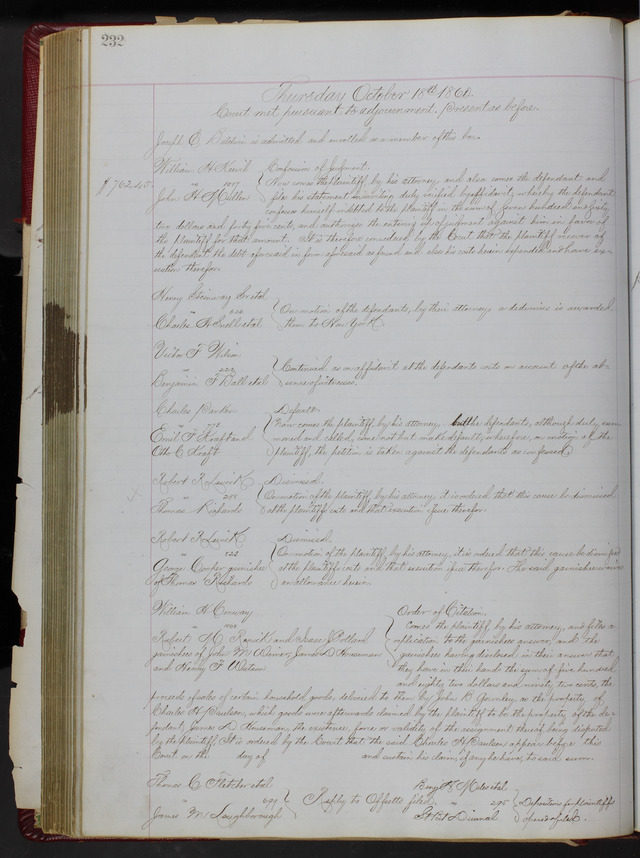 232
Thursday October 18th 1860.
Court met pursuant to adjournment. Present as before.
Joseph E. Baldwin is admitted and enrolled as a member of this bar.
William H. Confession of Judgment.
$762.45 Now comes the plaintiff by his attorney, and also comes the defendant and
John H. Muller files his statement in writing duly verified by affidavit, whereby the defendant
confesses himself indebted to the plaintiff in the sum of seven hundred and sixty
two dollars and forty five cents, and authorizes the entering up of judgment against him in favor of
the plaintiff for that amount. It is therefore considered by the Court that the plaintiff recover of
the defendant the debt aforesaid in form aforesaid confessed and also his costs herein expended and have exe-
cution therefor.
Henry Steinway et al
On motion of the defendants, by their attorney a dedimus is awarded
Charles et al them to New York.
Victor F. Wilson
Continued as on affidavit at the defendants costs on account of the ab-
Benjamin F. Ball et al sence of witnesses.
Charles Parker Default.
Now comes the plaintiff, by his attorney, but the defendants, although duly sum-
Emil F. Kraft and moned and called, come not but make default, wherefore, on motion of the
Otto C. Kraft plaintiff, the petition is taken against the defendants as confessed.
Robert R. Dismissed.
On motion of the plaintiff by his attorney, it is ordered that this cause be dismissed
Thomas Richards at the plaintiff's costs and that execution issue therefor.
Robert R. Dismissed.
523 On motion of the plaintiff, by his attorney, it is ordered that this cause be dismissed
George Cooper garnishee at the plaintiffs costs and that execution issue therefor. The said garnishee
of Thomas Richards an allowance herein.
William H. Conway Order of Citation.
Comes the plaintiff by his attorney, and files a
Robert M. and Isaac Pollard replication to the garnishees answer, and the
garnishees of John M. Weimer, James D. Houseman garnishees having disclosed in their answer that
and Henry F. Watson they have in their hands the sum of five hundred
and eighty two dollars and ninety two cents, the
proceeds of sales of certain household goods, delivered to them by John B. as the property of
Charles H. Paulsen, which goods were afterwards claimed by the plaintiff to be the property of the de-
fendant, James D. Houseman, the existence, force or validity of the assignment thereof being disputed
by the plaintiff. It is ordered by the Court that the said Charles H. Paulsen appear before this
Court on the day of and sustain his claim, if any he have, to said sum.
Thomas C. Fletcher et al Benj. et al
Reply to Offsetts filed. 295 Depositions for plaintiffs
James M. Loughborough opened & filed.